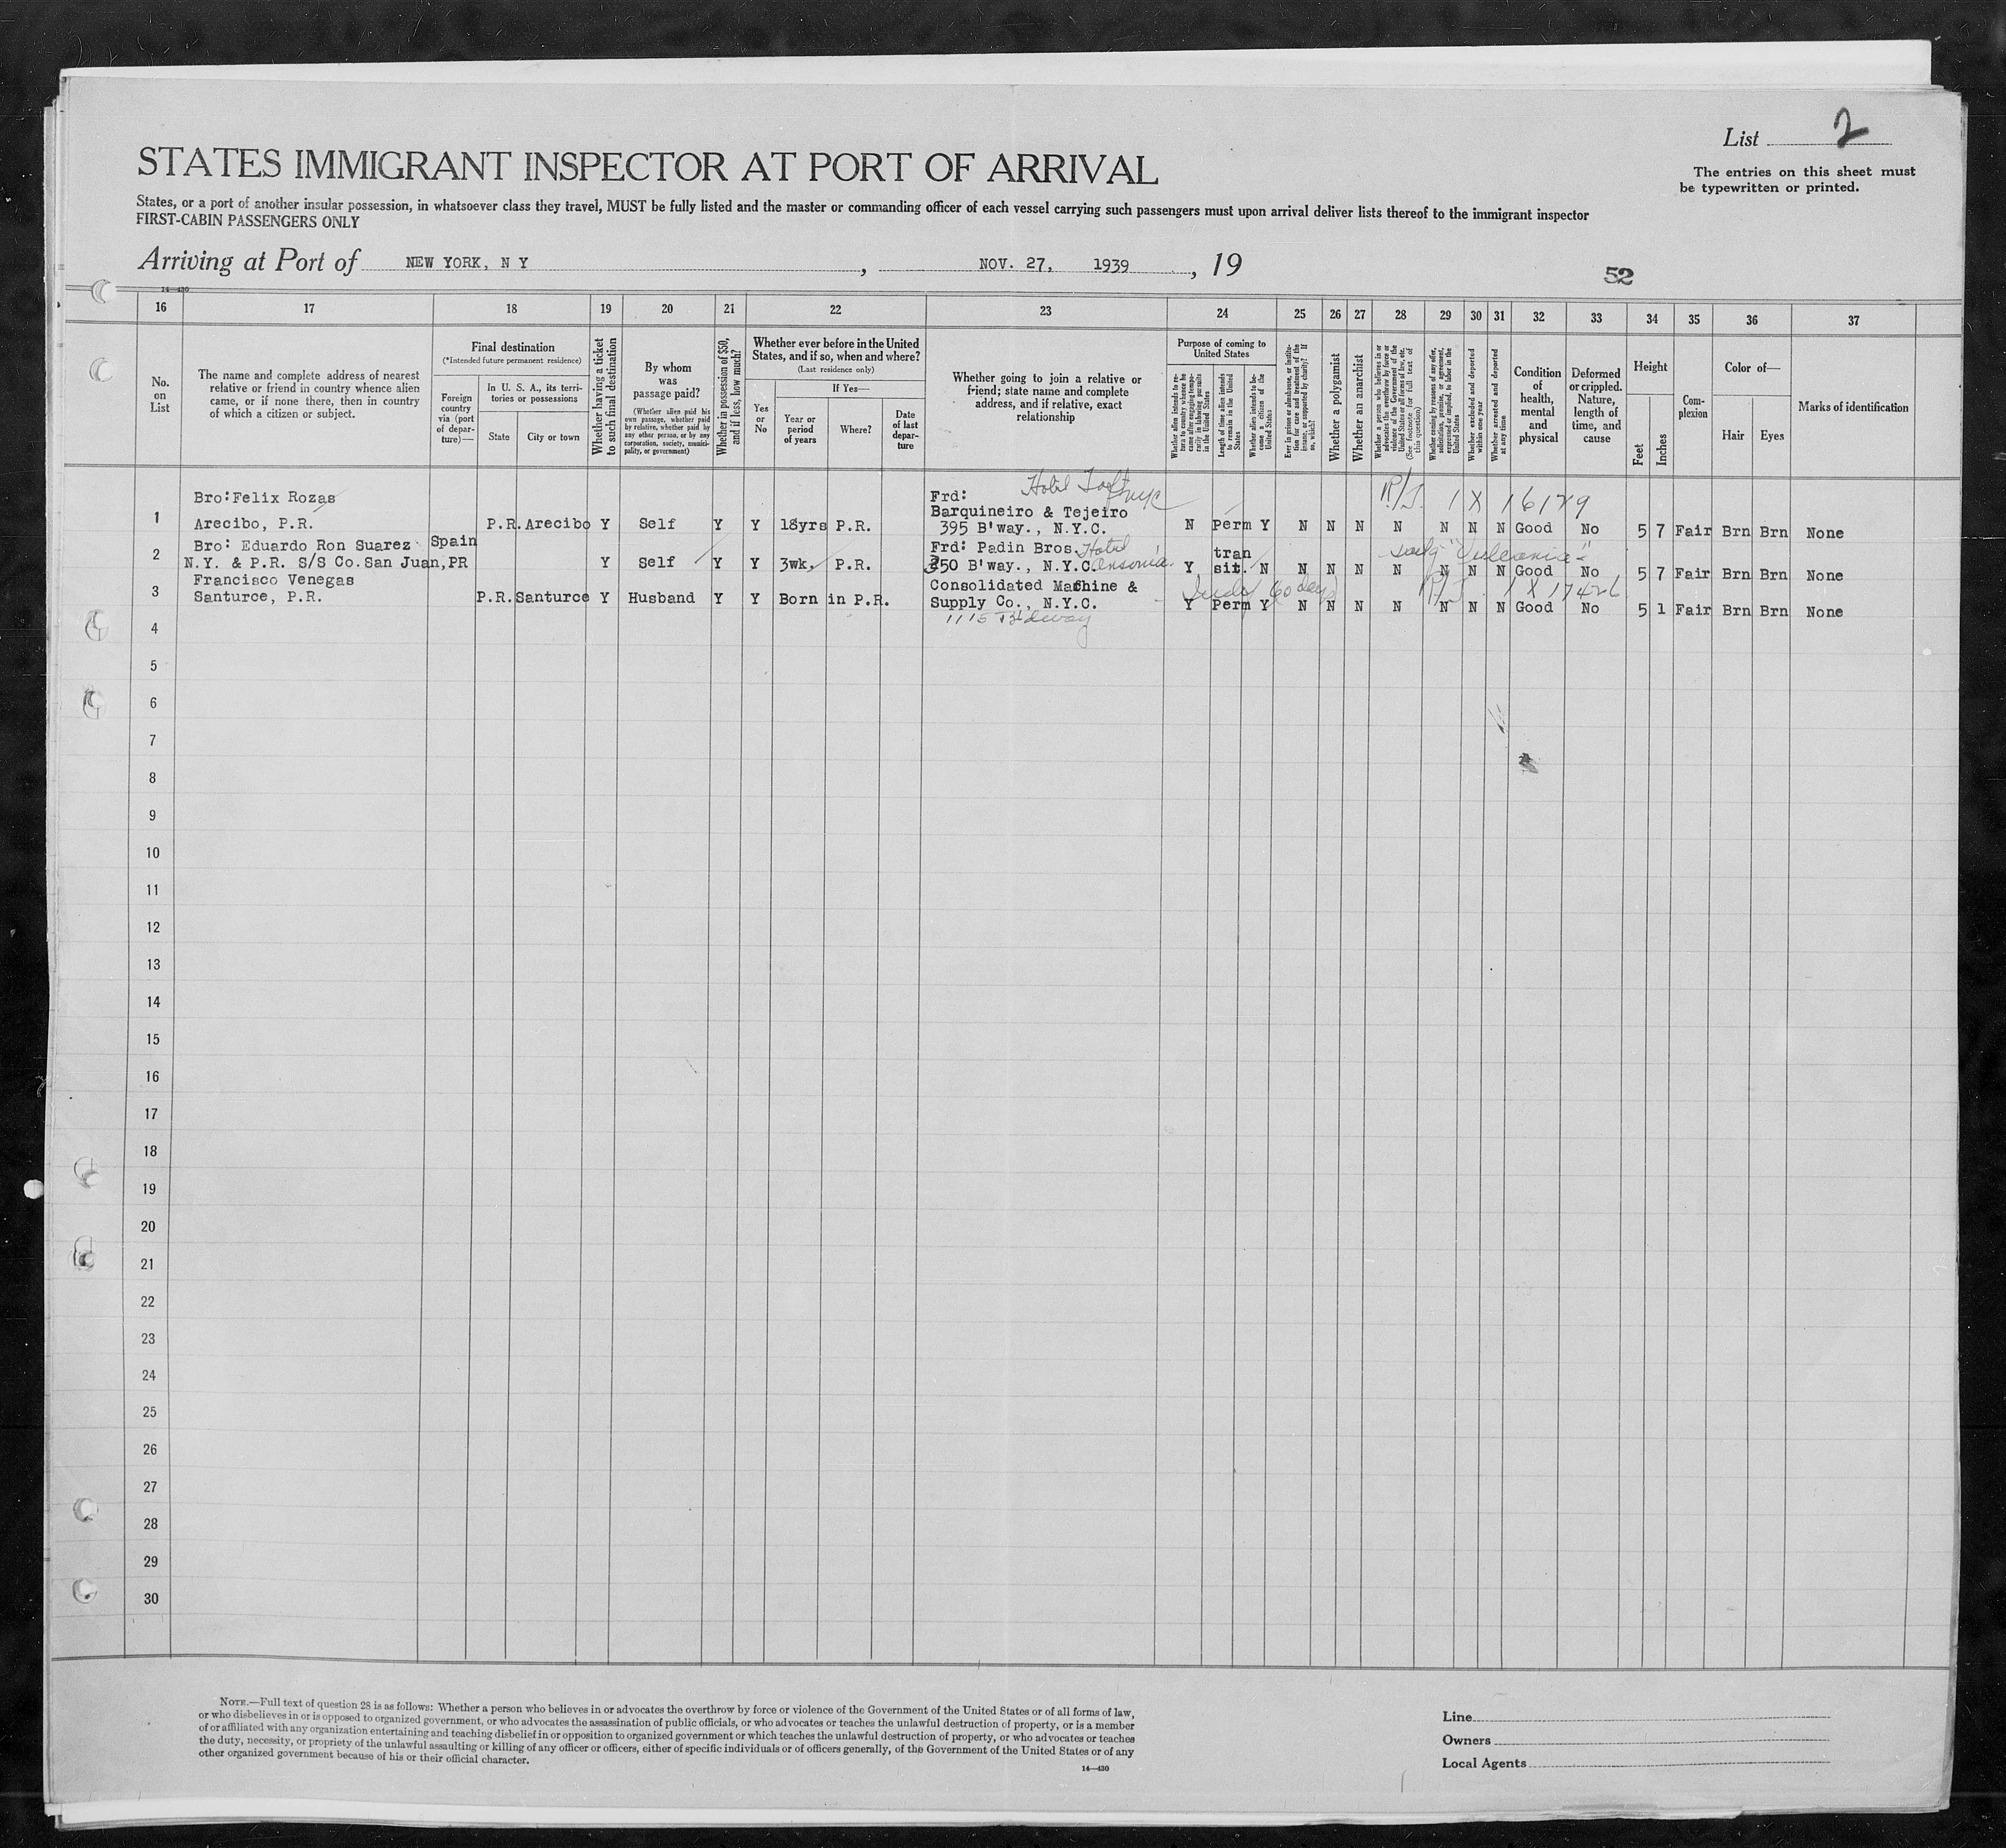 List 2
The entries on this sheet must
be typewritten or printed.
STATES IMMIGRANT INSPECTOR AT PORT OF ARRIVAL
States, or a port of another insular possession, in whatsoever class they travel, MUST be fully listed and the master or commanding officer of each vessel carrying such passengers must upon arrival deliver lists thereof to the immigrant inspector
FIRST-CABIN PASSENGERS ONLY
Arriving at Port of NEW YORK, N Y, NOV. 27, 1939, 19
52
14—430
16 17 18 19 20 21 22 23 24 25 26 27 28 29 30 31 32 33 34 35 36 37
No.
on
List
The name and complete address of nearest
relative or friend in country whence alien
came, or if none there, then in country
of which a citizen or subject.
Final destination
(*Intended future permanent residence)
Foreign
country
via (port
of depar-
ture)—
In U. S. A., its terri-
tories or possessions
State
City or town
Whether having a ticket
to such final destination
By whom
was
passage paid?
(Whether alien paid his
own passage, whether paid
by relative, whether paid by
any other person, or by any
corporation, society, munici-
pality, or government)
Whether in possession of $50,
and if less, how much?
Whether ever before in the United
States, and if so, when and where?
(Last residence only)
Yes
or
No
If Yes—
Year or
period
of years
Where?
Date
of last
depar-
ture
Whether going to join a relative or
friend; state name and complete
address, and if relative, exact
relationship
Purpose of coming to
United States
Whether alien intends to re-
turn to country whence he
came after engaging tempo-
rarily in laboring pursuits
in the United States
Length of time alien intends
to remain in the United
States
Whether alien intends to be-
come a citizen of the
United States
Ever in prison or almshouse, or institu-
tion for care and treatment of the
insane, or supported by charity? If
so, which?
Whether a polygamist
Whether an anarchist
Whether a person who believes in or
advocates the overthrow by force or
violence of the Government of the
United States or all forms of law, etc.
(See footnote for full text of
this question)
Whether coming by reason of any offer,
solicitation, promise, or agreement,
expressed or implied, to labor in the
United States
Whether excluded and deported
within one year
Whether arrested and deported
at any time
Condition
of
health,
mental
and
physical
Deformed
or crippled.
Nature,
length of
time, and
cause
Height
Feet
Inches
Com-
plexion
Color of—
Hair
Eyes
Marks of identification
Bro: Felix Rozas Frd: Hotel Taft NYC 1 X 16129
Barquineiro & Tejeiro
1 Arecibo, P.R. P.R. Arecibo Y Self Y Y 18yrs P.R. 395 B'way., N.Y.C. N Perm Y N N N N N N N Good No 5 7 Fair Brn Brn None
Bro: Eduardo Ron Suarez Spain Frd: Padin Bros. Hotel tran "Vulcania"
2 N.Y. & P.R. S/S Co. San Juan, PR Y Self Y Y 3wk. P.R. 350 B'way., N.Y.C. Ansonia Y sit. N N N N N N N N Good No 5 7 Fair Brn Brn None
Francisco Venegas Consolidated Machine & 60 days 1 X 17426
3 Santurce, P.R. P.R. Santurce Y Husband Y Y Born in P.R. Supply Co., N.Y.C. Y Perm Y N N N N N N N Good No 5 1 Fair Brn Brn None
1115 Bdway
4
5
6
7
8
9
10
11
12
13
14
15
16
17
18
19
20
21
22
23
24
25
26
27
28
29
30
NOTE.—Full text of question 28 is as follows: Whether a person who believes in or advocates the overthrow by force or violence of the Government of the United States or of all forms of law,
or who disbelieves in or is opposed to organized government, or who advocates the assassination of public officials, or who advocates or teaches the unlawful destruction of property, or is a member
of or affiliated with any organization entertaining and teaching disbelief in or opposition to organized government or which teaches the unlawful destruction of property, or who advocates or teaches
the duty, necessity, or propriety of the unlawful assaulting or killing of any officer or officers, either of specific individuals or of officers generally, of the Government of the United States or of any
other organized government because of his or their official character.
14—430
Line
Owners
Local Agents